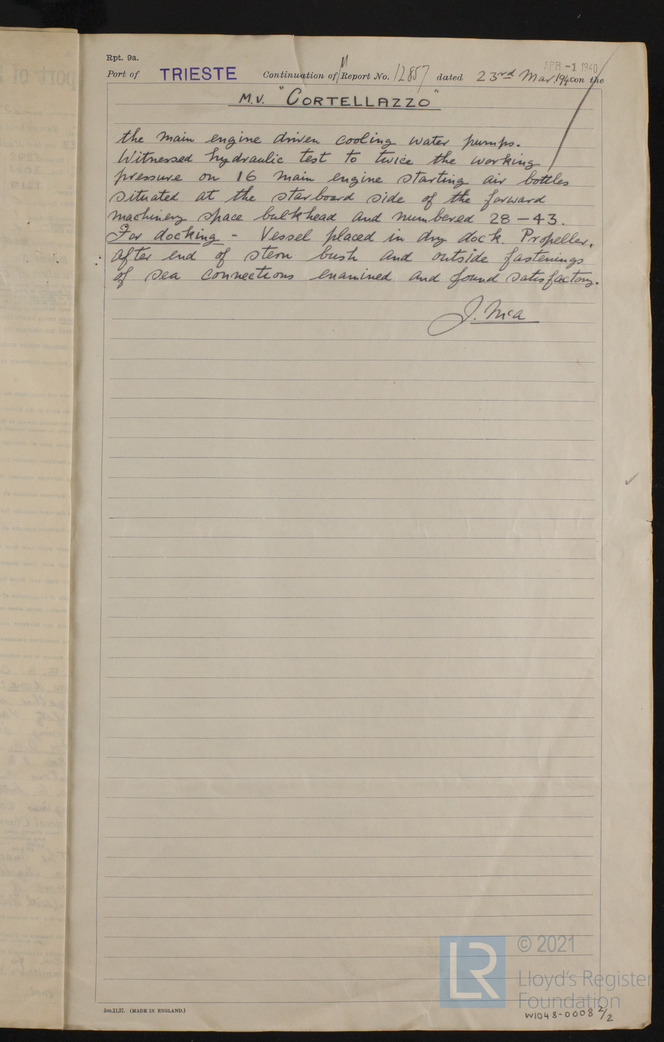 Rpt. 9a.
APR -1 1940
Port of TRIESTE Continuation of Report No. 12857 dated 23rd Mar. 1940 on the
M.V. "CORTELLAZZO"
the main engine driven cooling water pumps.
Witnessed hydraulic test to twice the working
pressure on 16 main engine starting air bottles
situated at the starboard side of the forward
machinery space bulkhead and numbered 28 - 43.
For docking - Vessel placed in dry dock. Propeller,
after end of stern bush and outside fastenings
of sea connections examined and found satisfactory.
© 2021
LR
Lloyd's Register
Foundation
(MADE IN ENGLAND.)
W1048-0008 2/2